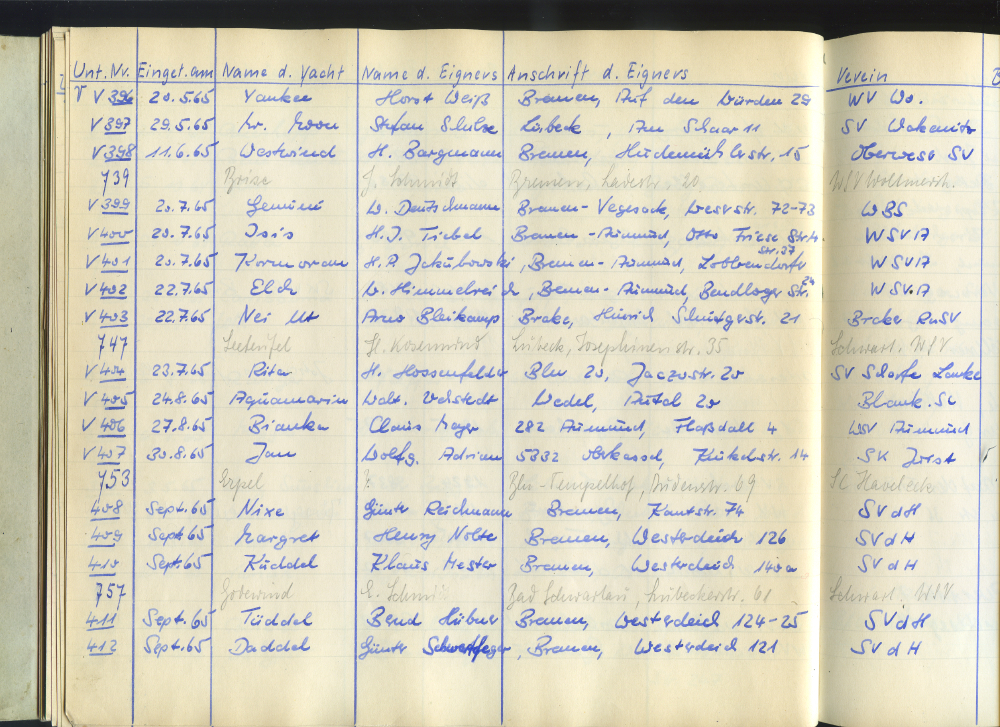 Unt. Nr. Einget. am Name d. Yacht Name d. Eigners Anschrift d. Eigners Verein
V V 396 20.5.65 Yankee Horst Weiß Bremen, Auf den Wurden 29 WV Wo.
V 397 29.5.65 Stefan Schulze Lübeck, Am Schaar 11 SV Wakenitz
V 398 11.6.65 Westwind H. Bargmann Bremen, Hudemühlerstr. 15 Oberweser SV
739 Brise J. Schmidt Bremen, 20 WSV Woltmersh.
V 399 20.7.65 Gemini W. Deutschmann Bremen-Vegesack, Weserstr. 72-73 WBS
V 400 20.7.65 Isis H.J. Tiebel Bremen-Aumund, Otto Friese Str. WSVA
V 401 20.7.65 Kormoran H.P. Jakubowski, Bremen-Aumund, Lobbendorfer Str. 37 WSVA
V 402 22.7.65 Elch W. Himmelreich, Bremen-Aumund, Str. WSV.A
V 403 22.7.65 Nei Ut Arno Bleikamp Brake, Hinrich Schnitgerstr. 21 Braker RuSV
747 Seeteufel H. Rosemund Lübeck, Josephinenstr. 35 Schwart. WSV
V 404 23.7.65 Rita H. Hossenfelder Bln 20, Jaczostr. 20 SV Scharfe Lanke
V 405 24.8.65 Aquamarin Walt. Wedel, Autal 20 Blank. SC
V 406 27.8.65 Bianka Claus Meyer 282 Aumund, 4 WSV Aumund
V 407 30.8.65 Jan Wolfg. Adrian 5332 Oberkassel, 14 SK
753 Erpel ? Bln-Tempelhof, Dudenstr. 69 SC Havelecke
408 Sept. 65 Nixe Günter Reichmann Bremen, Kantstr. 74 SVdH
409 Sept 65 Margret Henry Nolte Bremen, Westerdeich 126 SVdH
410 Sept. 65 Küddel Klaus Mester Bremen, Westerdeich 140a SVdH
757 E. Schmidt Bad Schwartau, Lübeckerstr. 61 Schwart. WSV
411 Sept. 65 Tüddel Bernd Hübner Bremen, Westerdeich 124-25 SVdH
412 Sept. 65 Daddel Günter Schwertfeger, Bremen, Westerdeich 121 SVdH